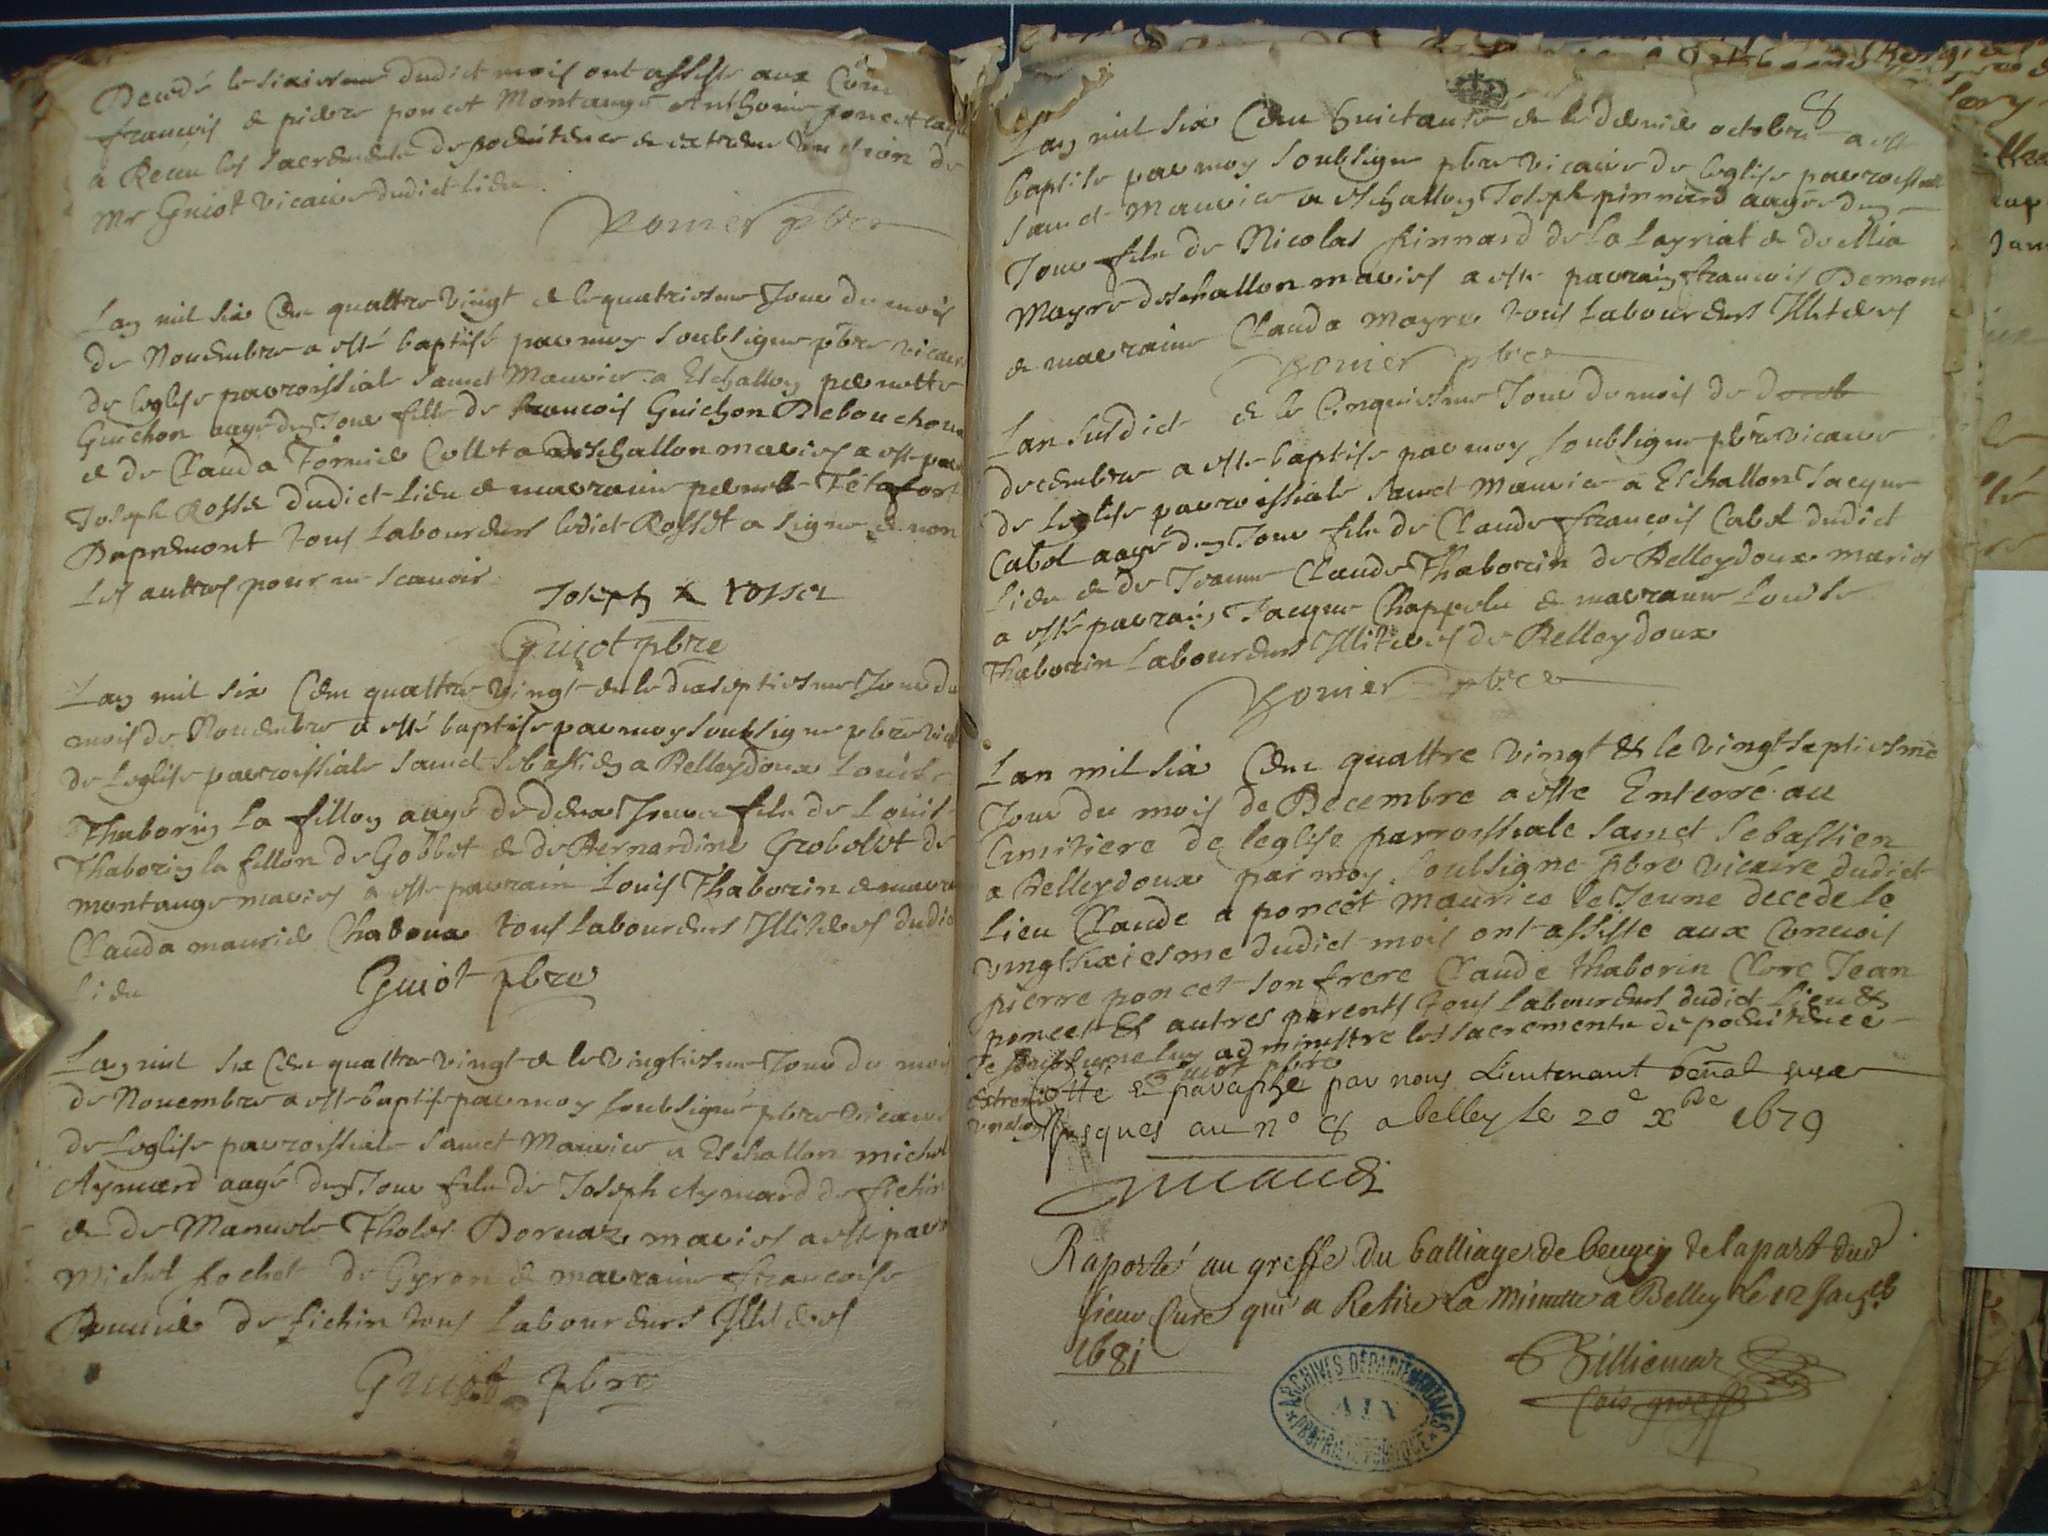 Decedé le sixiesme dudict mois ont assiste aux
francois & pierre poncet Montange Anthoine poncet
a Receu les sacrements de poenitence & extreme unction de
Mr Guiot vicaire dudict lieu
Vomier pbre
Lan mil six Cen quattre vingt & le quatriesme Jour du mois
de Nouembre a esté baptisé par moy soubsigne pbre vicaire
de leglise parroissiale sainct Maurice a Eschallon pernette
Guichon aagé dun Jour fille de francois Guichon Debouchoux
& de Clauda Fornier Colleta deschallon maries a este par
Joseph Rosset dudict lieu & marraine pernette
Dapremont tous Laboureurs ledict Rosset a signe & non
Les auttres pour ne scauoir
Joseph rosset
Guiot pbre
Lan mil six Cen quattre vingt & le dixseptiesme Jour du
mois de Nouembre a esté baptise par moy soubsigne pbre
de Leglise parroissiale sainct sebastien a Belleydoux Louis
Thaborin La fillon aagé de deux Jours fils de Louis
Thaborin la fillon de Gobbet & de Bernardine Grobollet de
montange maries a este parrain Louis Thaborin & marr
Clauda maurier Chaboux tous Laboureurs Illiteres dudic
Lieu
Guiot pbre
Lan mil six Cen quattre vingt & le vingtiesme Jour du moi
de Nouembre a este baptise par moy soubsigné pbre vicaire
de Leglise parroissiale sainct Maurice a Eschallon michel
Aymard aagé dun Jour fils de Joseph Aymard de fichin
& de Manuele Tholet Doruaz maries a este parr
Michel fochet de Gyron & marraine francoise
de fichin tous Laboureurs Illiteres
Guiot pbre
8
Lan mil six Cen huictante & le dernier octobre a este
baptise par moy soubsigne pbre vicaire de leglise parroissiale
sainct Maurice a Eschallon Joseph pinnard aagé dun
Jour fils de Nicolas pinnard de la Layriat & de Mia
Mayre deschallon maries a este parrain francois Demont
& marraine Clauda mayre tous Laboureurs Illiteres
Vomier pbre
Lan susdict & le Cinquiesme Jour du mois de
decembre a este baptise par moy soubsigne pbre vicaire
de Leglise parroissiale sainct Maurice a Eschallon Jacque
Cabot aagé dun Jour fils de Claude francois Cabot dudict
Lieu & de Jeanne Claude Thaborin de Belleydoux maries
a esté parrain Jacque Chappelu & marraine Louise
Thaborin Laboureurs Illiteres de Belleydoux
Vomier pbre
Lan mil six Cen quattre vingt & le vingtseptiesme
Jour du mois de Decembre a este Enterré au
Cimitiere de leglise parroissiale sainct sebastien
a Belleydoux par moy soubsigne pbre vicaire dudict
Lieu Claude a poncet maurice le Jeune decede le
vingtsixiesme dudict mois ont assiste aux Conuois
pierre poncet son frere Claude thaborin Clerc Jean
poncet & autres parents tous Laboureurs dudict Lieu &
luy administre les sacrements de poenitence
extreme
Guiot pbre
Cotte & paraphe par nous Lieutenant
Jusques au n° 8 a belley le 20e xbre 1679
Raporté au greffe du balliage de beugey de la part dud
sieur Cure qui a Retire La Minutte a Belley le 12
1681
Billiemaz
ARCHIVES DÉPARTEMENTALES
AIN
PROPRIÉTÉ PUBLIQUE